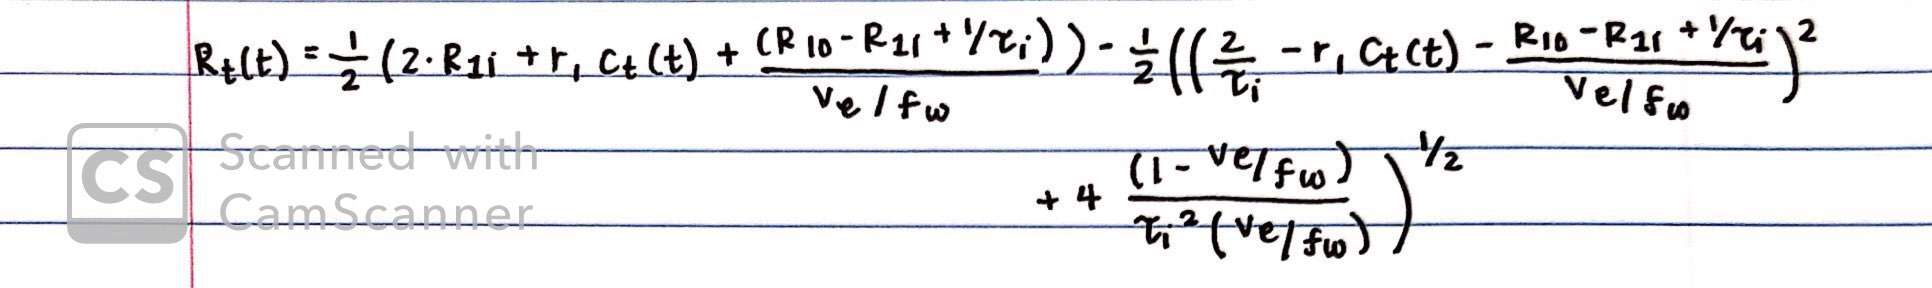 R_t(t) = 1/2 (2·R_{1i} + r_1 C_t(t) + (R_{10} - R_{1i} + 1/τ_i) / (v_e/f_w)) - 1/2 ((2/τ_i - r_1 C_t(t) - (R_{10} - R_{1i} + 1/τ_i) / (v_e/f_w))^2
+ 4 (1 - v_e/f_w) / (τ_i^2 (v_e/f_w)))^{1/2}
CS Scanned with
CamScanner